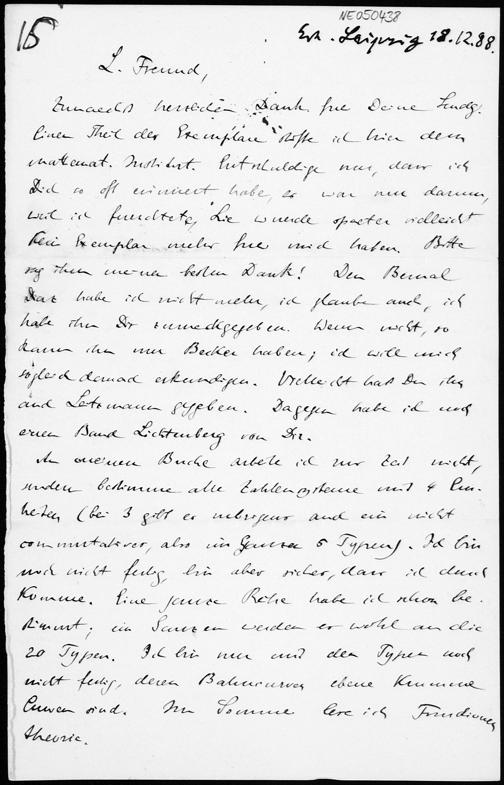 15
NE050438
Erh. Leipzig 18.12.88.
L. Freund,
Zunaechst herzlichen Dank fue Deine Sendg.
Einen Theil der Exemplare stifte ich hier dem
mathemat. Institut. Entschuldige nur, dass ich
Dich so oft erinnert habe, es war nur darum,
weil ich fuerchtete, Lie wuerde spaeter vielleicht
kein Exemplar mehr fuer mich haben. Bitte
sag ihm meinen besten Dank! Den Bernal
Diaz habe ich nicht mehr, ich glaube auch, ich
habe ihn Dir zurueckgegeben. Wenn nicht, so
kann ihn nur Becker haben; ich will mich
sogleich darnach erkundigen. Vielleicht hast Du ihn
auch gegeben. Dagegen habe ich noch
einen Band Lichtenberg von Dir.
An meinem Buche arbeite ich zur Zeit nicht,
sondern bestimme alle Zahlensysteme mit 4 Ein-
heiten (bei 3 gibt es uebrigens auch ein nicht
commutatives, also im Ganzen 5 Typen). Ich bin
noch nicht fertig, bin aber sicher, dass ich durch
komme. Eine ganze Reihe habe ich schon be-
stimmt; im Ganzen werden es wohl an die
20 Typen. Ich bin nur mit den Typen noch
nicht fertig, deren Bahncurven ebene krumme
Curven sind. Im Sommer lese ich Functionen
theorie.